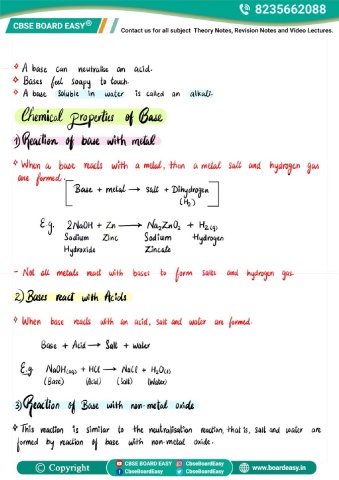 8235662088
CBSE BOARD EASY®
Contact us for all subject Theory Notes, Revision Notes and Video Lectures.
❖ A base can neutralise an acid.
❖ Bases feel soapy to touch.
❖ A base soluble in water is called an alkali.
Chemical properties of Base
1) Reaction of base with metal
❖ When a base reacts with a metal, then a metal salt and hydrogen gas
are formed.
[Base + metal → salt + Dihydrogen
(H₂)]
E.g. 2NaOH + Zn → Na₂ZnO₂ + H₂(g)
Sodium Zinc Sodium Hydrogen
Hydroxide Zincate
- Not all metals react with bases to form salts and hydrogen gas.
2) Bases react with Acids
❖ When base reacts with an acid, salt and water are formed.
Base + Acid → Salt + water
E.g NaOH(aq) + HCl → NaCl + H₂O(l)
(Base) (Acid) (Salt) (Water)
3) Reaction of Base with non-metal oxide
❖ This reaction is similar to the neutralisation reaction, that is, salt and water are
formed by reaction of base with non-metal oxide.
© Copyright
CBSE BOARD EASY CbseBoardEasy
CbseBoardEasy CbseBoardEasy
www.boardeasy.in